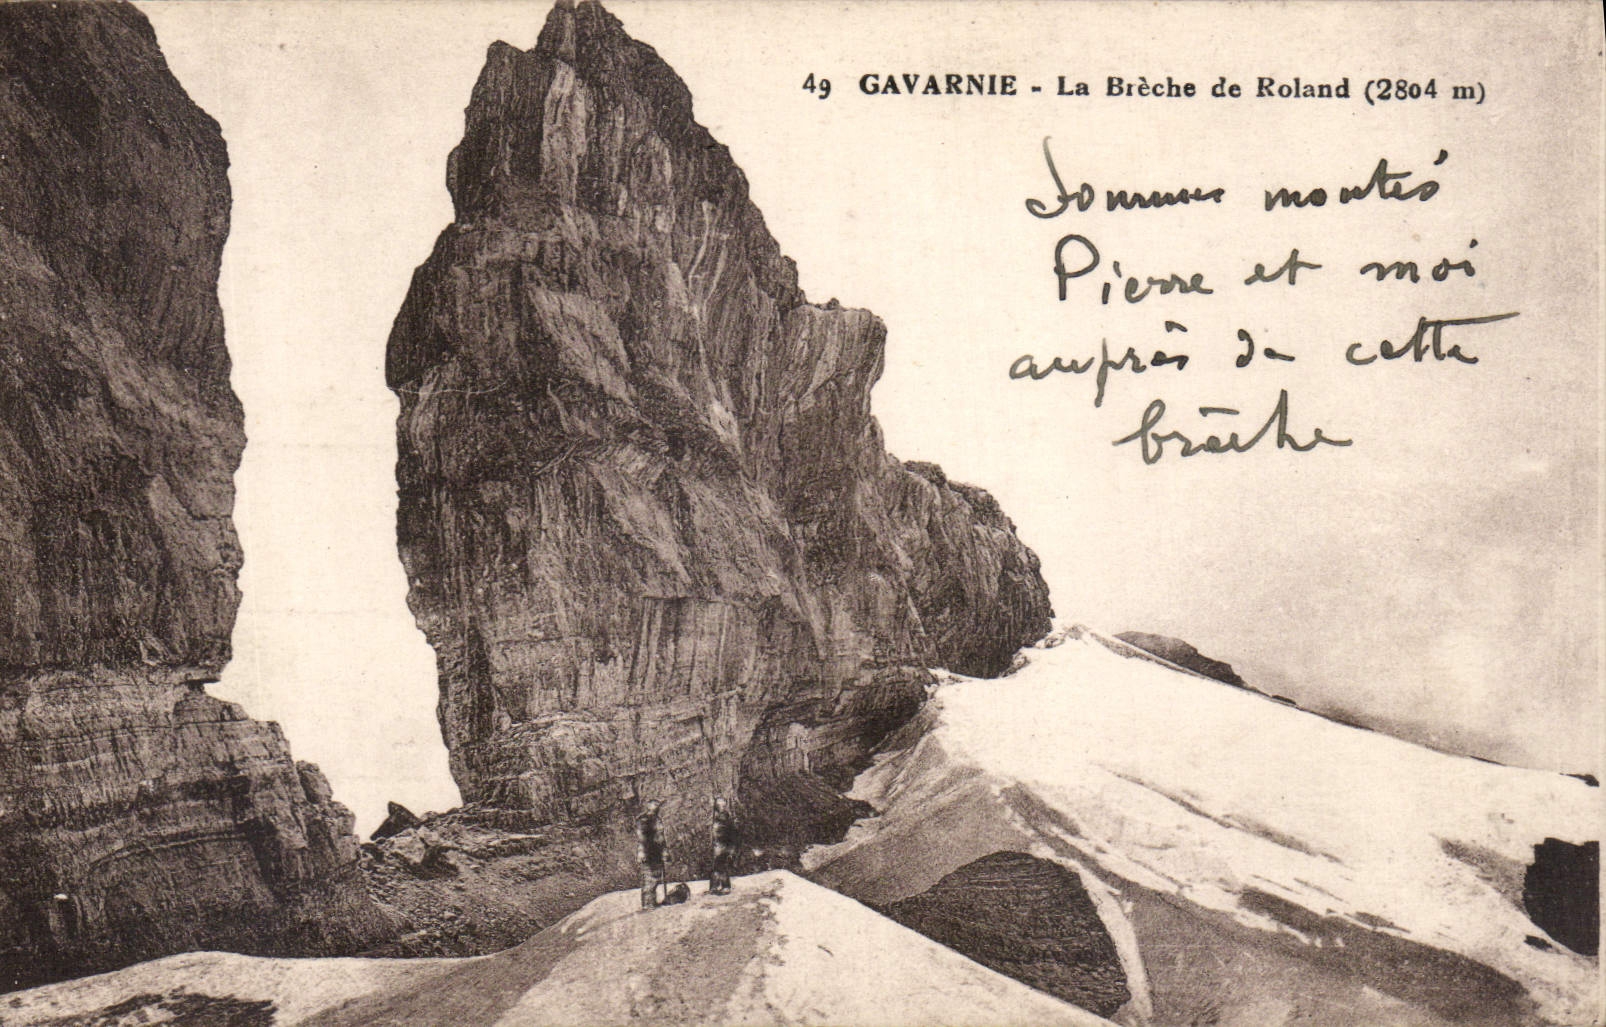 49 GAVARNIE - La Brèche de Roland (2804 m)
Sommes montés
Pierre et moi
auprès de cette
brèche